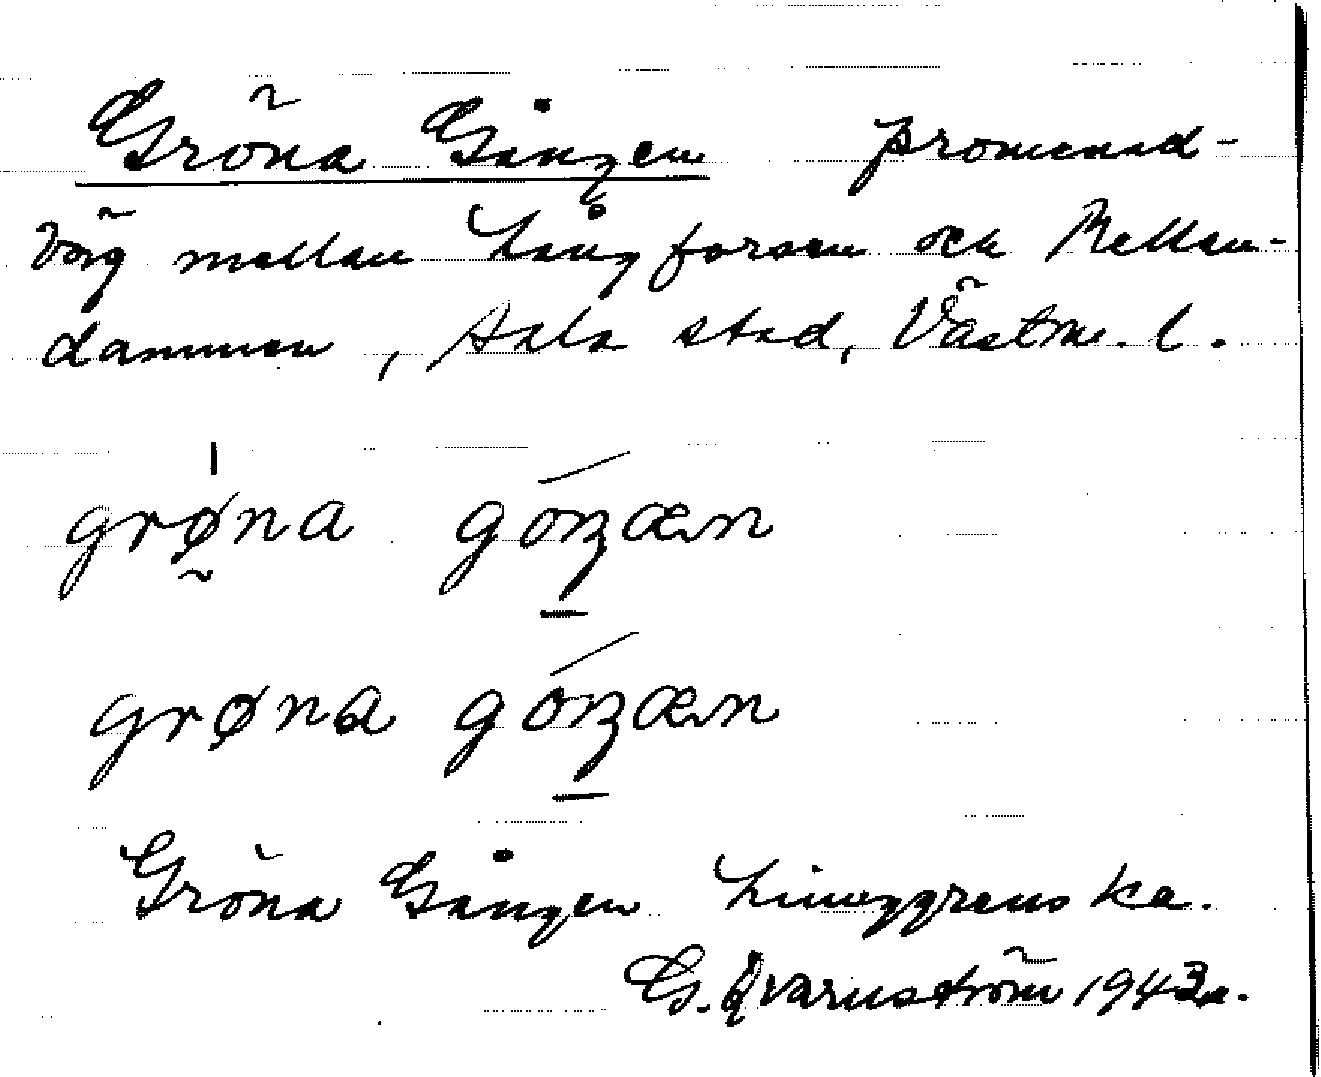 Gröna Gången promenad-
väg mellan Långforsen och Mellan-
dammen, Sala stad, Västm. l.
grøna góŋæn
grøna góŋæn
Gröna Gången Linnggrens ka.
G. Qvarnström 1943.